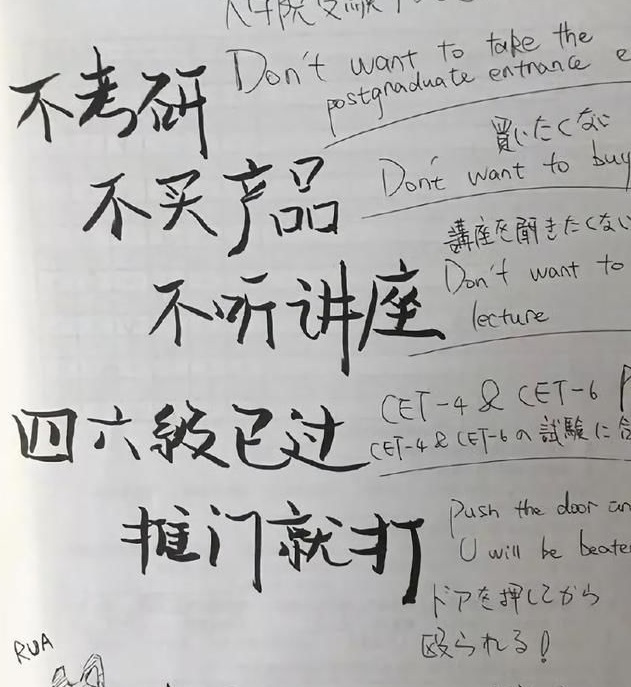 不考研
Don't want to take the
postgraduate entrance e
買いたくない
不买产品
Don't want to buy
講座を聞きたくない
不听讲座
Don't want to
lecture
CET-4 & CET-6
四六级已过
CET-4 & CET-6 の試験に合
推门就打
Push the door an
U will be beate
ドアを押してから
殴られる!
RUA